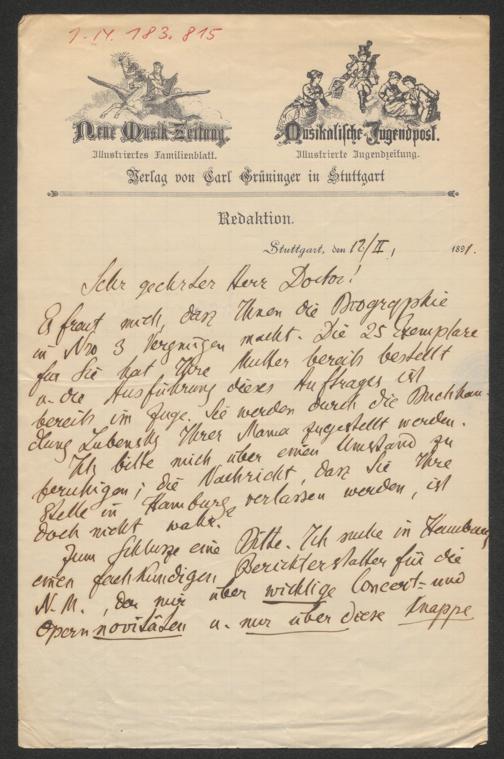 1. IV. 183. 815
Neue Musik-Zeitung.
Musikalische Jugendpost.
Illustriertes Familienblatt.
Illustrierte Jugendzeitung.
Verlag von Carl Grüninger in Stuttgart
Redaktion.
Stuttgart, den 12/II, 1891.
Sehr geehrter Herr Doctor!
Es freut mich, dass Ihnen die Biographie
in Nro 3 Vergnügen macht. Die 25 Exemplare
für Sie hat Ihre Mutter bereits bestellt
u. die Ausführung dieses Auftrages ist
bereits im Zuge. Sie werden durch die Buchhan-
dlung Lubensky Ihrer Mama zugestellt werden.
Ich bitte mich über einen Umstand zu
beruhigen; die Nachricht, dass Sie Ihre
Stelle in Hamburg verlassen werden, ist
doch nicht wahr.
Zum Schlusse eine Bitte. Ich suche in Hamburg
einen fachkundigen Berichterstatter für die
N. M., der nur über wichtige Concert- und
Opernnovitäten u. nur über diese knappe